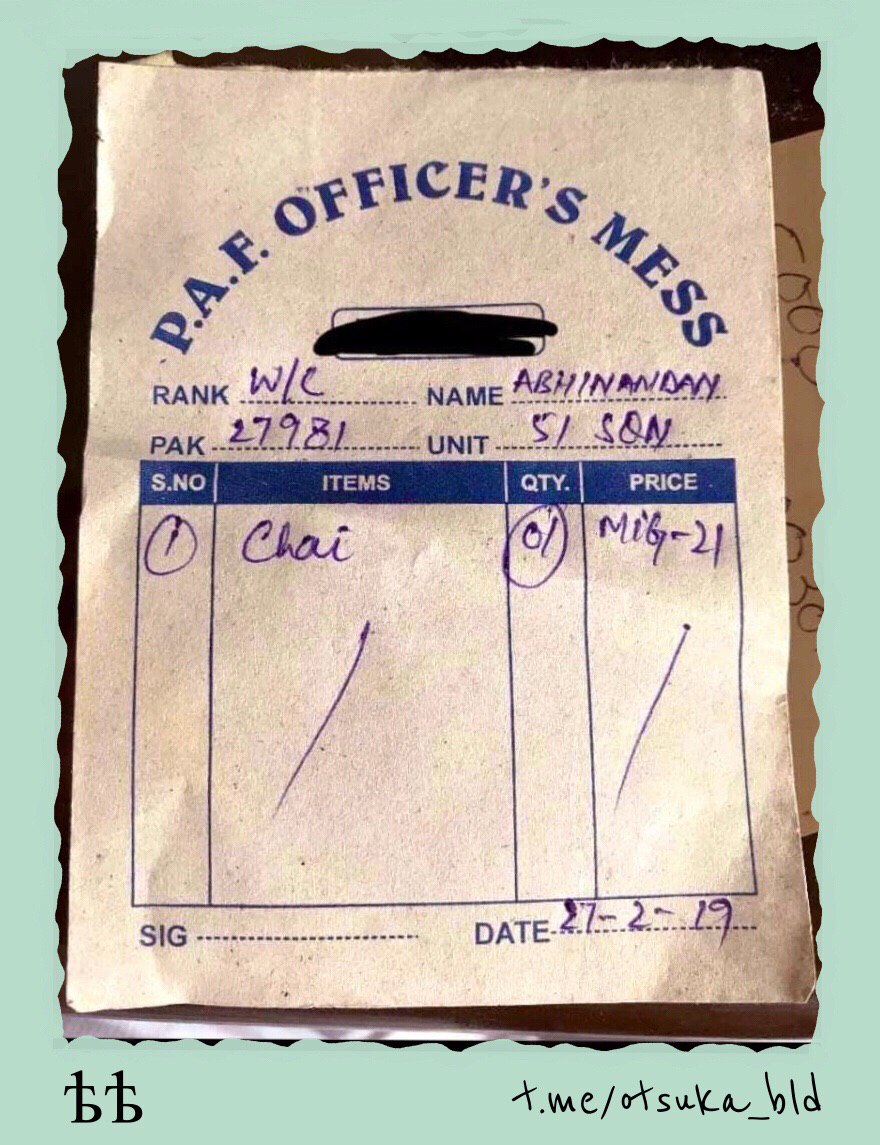 P.A.F. OFFICER'S MESS
RANK W/C NAME ABHINANDAN
PAK 27981 UNIT 51 SQN
S.NO ITEMS QTY. PRICE
1 Chai 01 MiG-21
SIG DATE 27-2-19
ѢѢ t.me/otsuka_bld